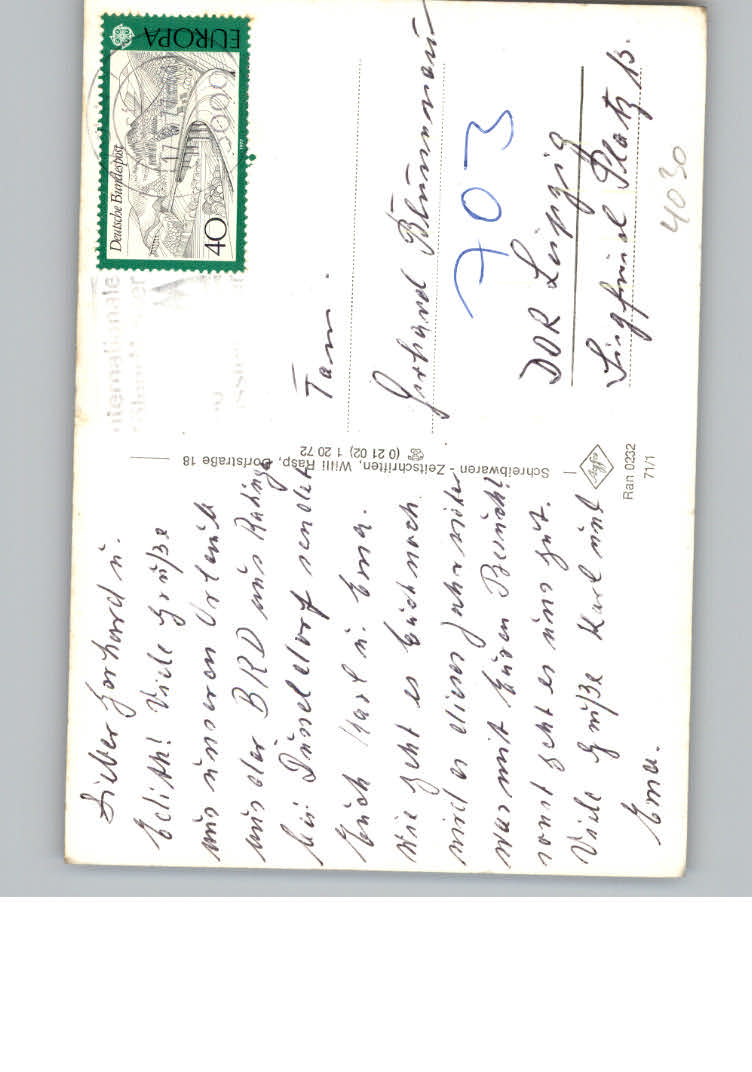 Lieber Gerhard u.
Edith! Viele Grüße
aus unseren Urlaub
aus der BRD aus Rating
bei Düsseldorf sendet
Euch Karl u. Erna.
Wie geht es Euch noch
wird es dieses Jahr wieder
was mit Euren Besuch?
sonst geht es uns gut.
Viele Grüße Karl und
Erna.
Schreibwaren - Zeitschriften, Willi Rasp, Dorfstraße 18
(0 21 02) 1 20 72
Agfa
Ran 0232
71/1
EUROPA
Deutsche Bundespost
40
1977
Internationale
Fam.
Gerhard Blumenau
703
DDR Leipzig
Siegfried Platz 13.
4030